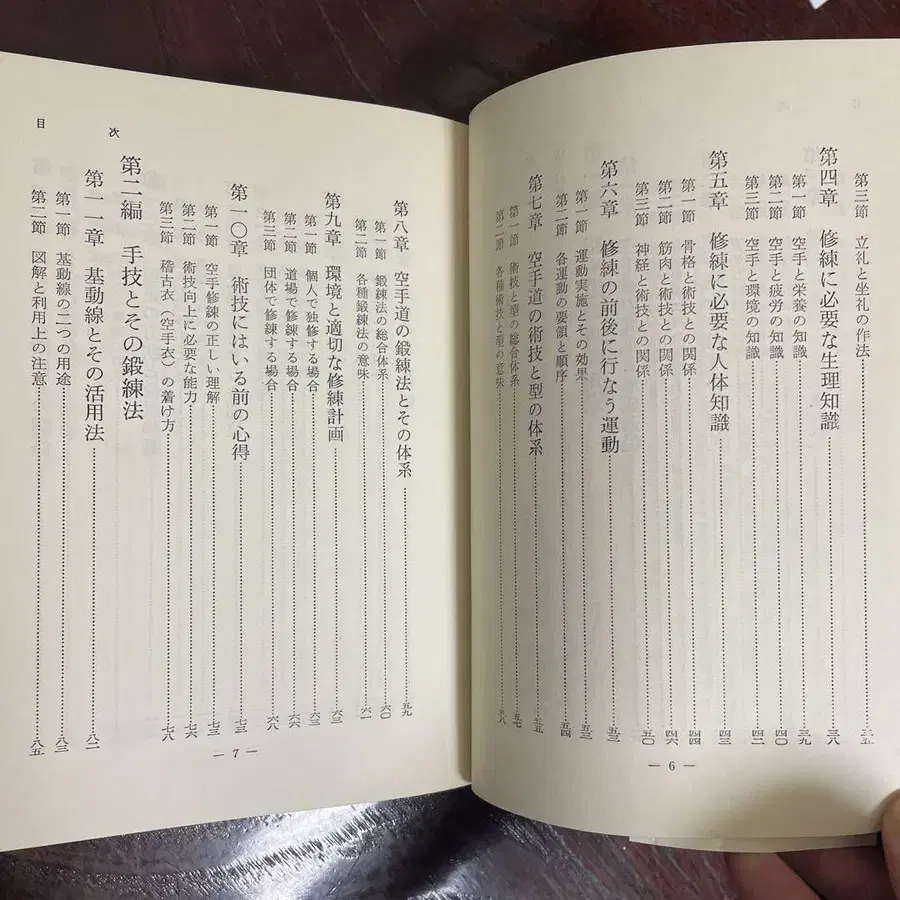 第三節 立礼と坐礼の作法……三五
第四章 修練に必要な生理知識……三八
第一節 空手と栄養の知識……三九
第二節 空手と疲労の知識……四〇
第三節 空手と環境の知識……四二
第五章 修練に必要な人体知識……四三
第一節 骨格と術技との関係……四四
第二節 筋肉と術技との関係……四六
第三節 神経と術技との関係……五〇
第六章 修練の前後に行なう運動……五三
第一節 運動実施とその効果……五三
第二節 各運動の要領と順序……五四
第七章 空手道の術技と型の体系……五五
第一節 術技と型の総合体系……五七
第二節 各種術技と型の意味……五八
— 6 —
目次
第八章 空手道の鍛練法とその体系……五九
第一節 鍛練法の総合体系……六〇
第二節 各種鍛練法の意味……六一
第九章 環境と適切な修練計画……六三
第一節 個人で独修する場合……六三
第二節 道場で修練する場合……六六
第三節 団体で修練する場合……六八
第一〇章 術技にはいる前の心得……七三
第一節 空手修練の正しい理解……七三
第二節 術技向上に必要な能力……七六
第三節 稽古衣（空手衣）の着け方……七八
第二編 手技とその鍛練法
第一一章 基動線とその活用法……八二
第一節 基動線の二つの用途……八三
第二節 図解と利用上の注意……八五
— 7 —